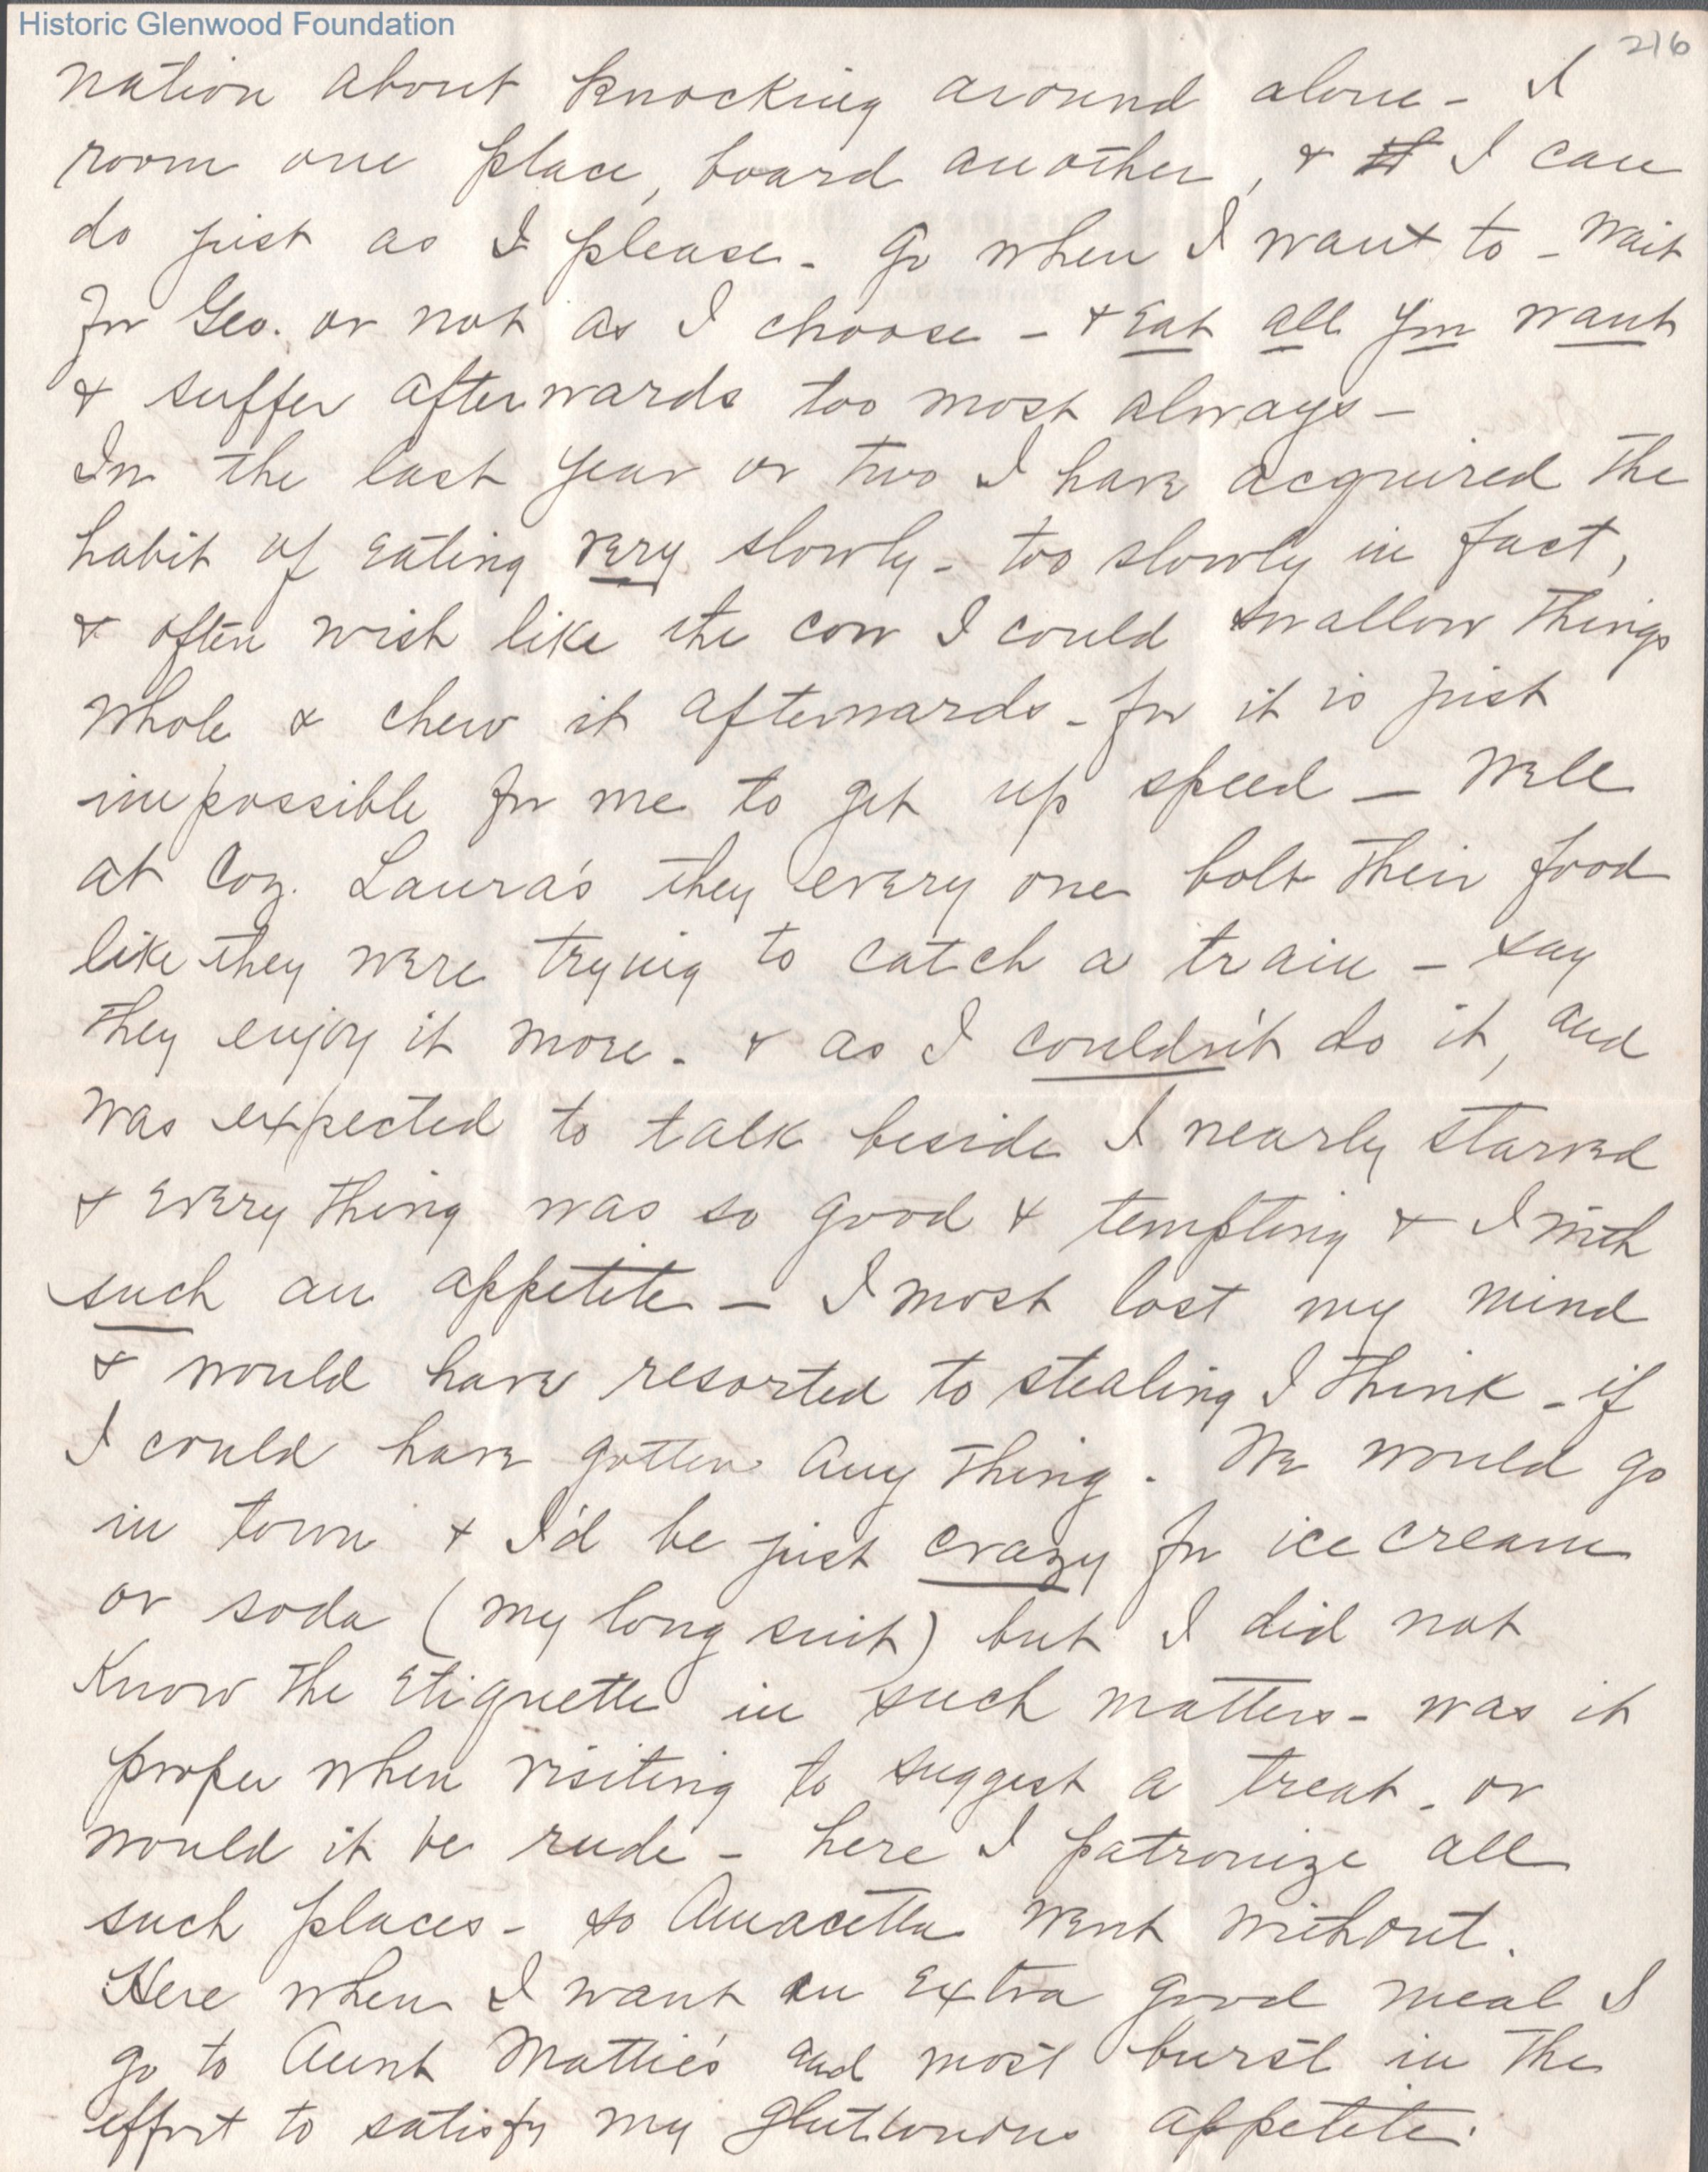 Historic Glenwood Foundation
216
nation about knocking around alone - I
room one place, board another, & I can
do just as I please - go when I want to - wait
for Geo. or not as I choose - & eat all you want
& suffer afterwards too most always -
In the last year or two I have acquired the
habit of eating very slowly - too slowly in fact,
& often wish like the cow I could swallow things
whole & chew it afterwards - for it is just
impossible for me to get up speed - Well
at Coz. Laura's they every one bolt their food
like they were trying to catch a train - say
they enjoy it more - & as I couldn't do it, and
was expected to talk beside I nearly starved
& every thing was so good & tempting & I with
such an appetite - I most lost my mind
& would have resorted to stealing I think - if
I could have gotten any thing. We would go
in town & I'd be just crazy for ice cream
or soda (my long suit) but I did not
know the etiquette in such matters - was it
proper when visiting to suggest a treat - or
would it be rude - here I patronize all
such places - so Amacetta went without.
Here when I want an extra good meal I
go to Aunt Mattie's and most burst in the
effort to satisfy my gluttonous appetite.